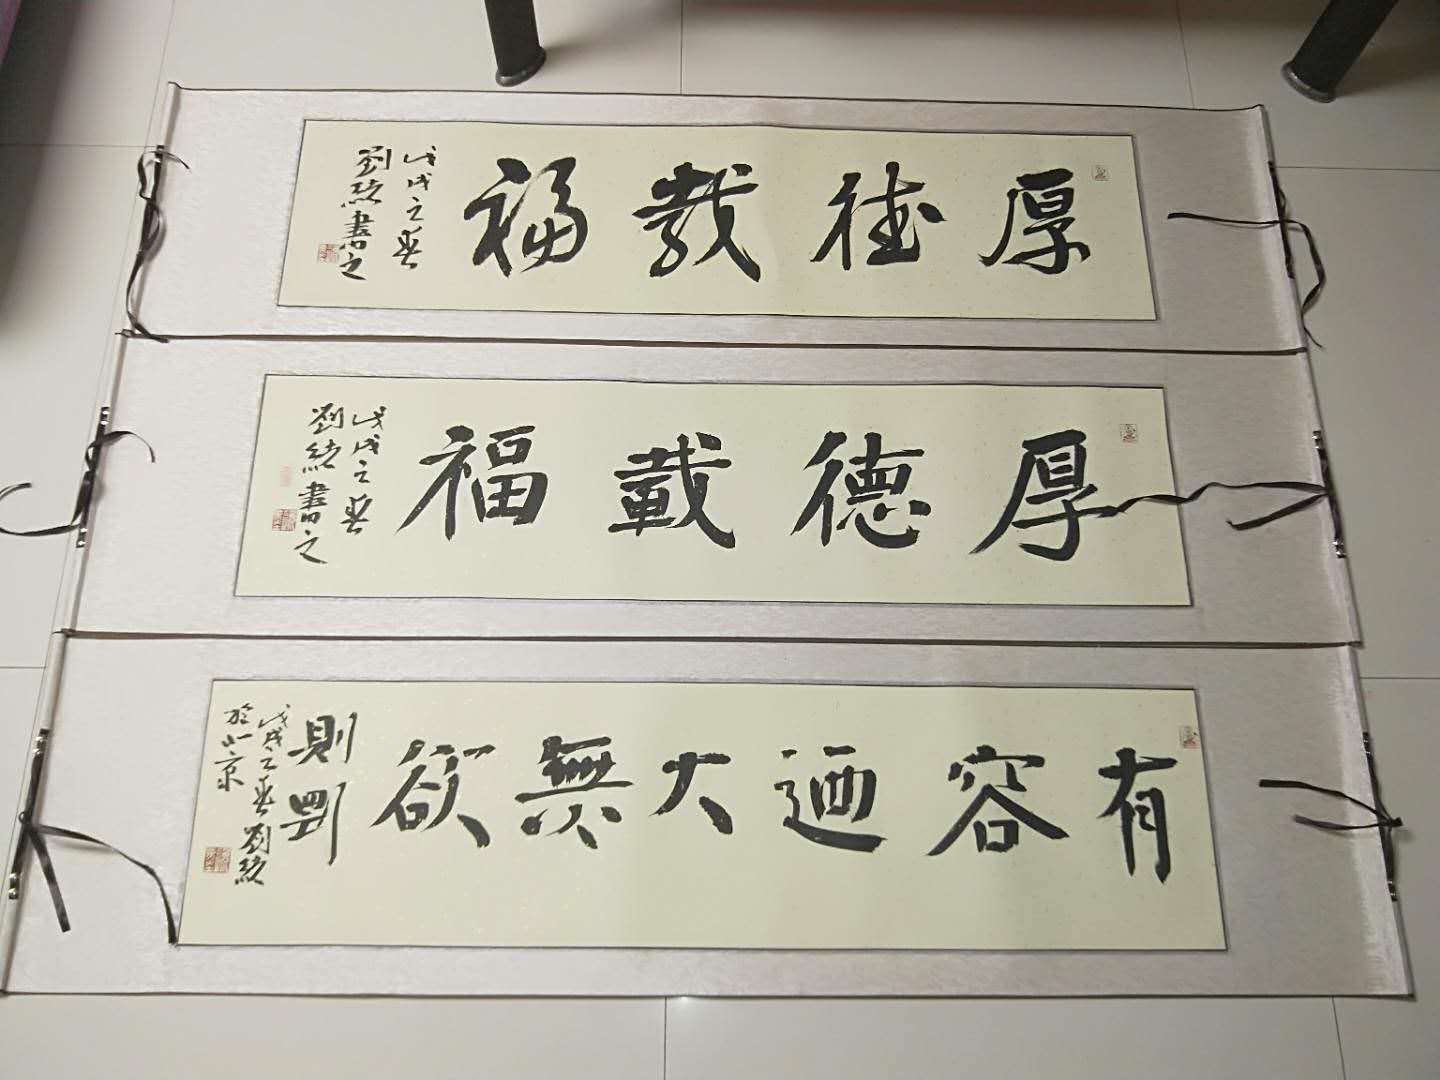 厚德載福
戊戌之春
劉統書之
厚德載福
戊戌之春
劉統書之
有容迺大無欲則剛
戊戌之春劉統
於北京